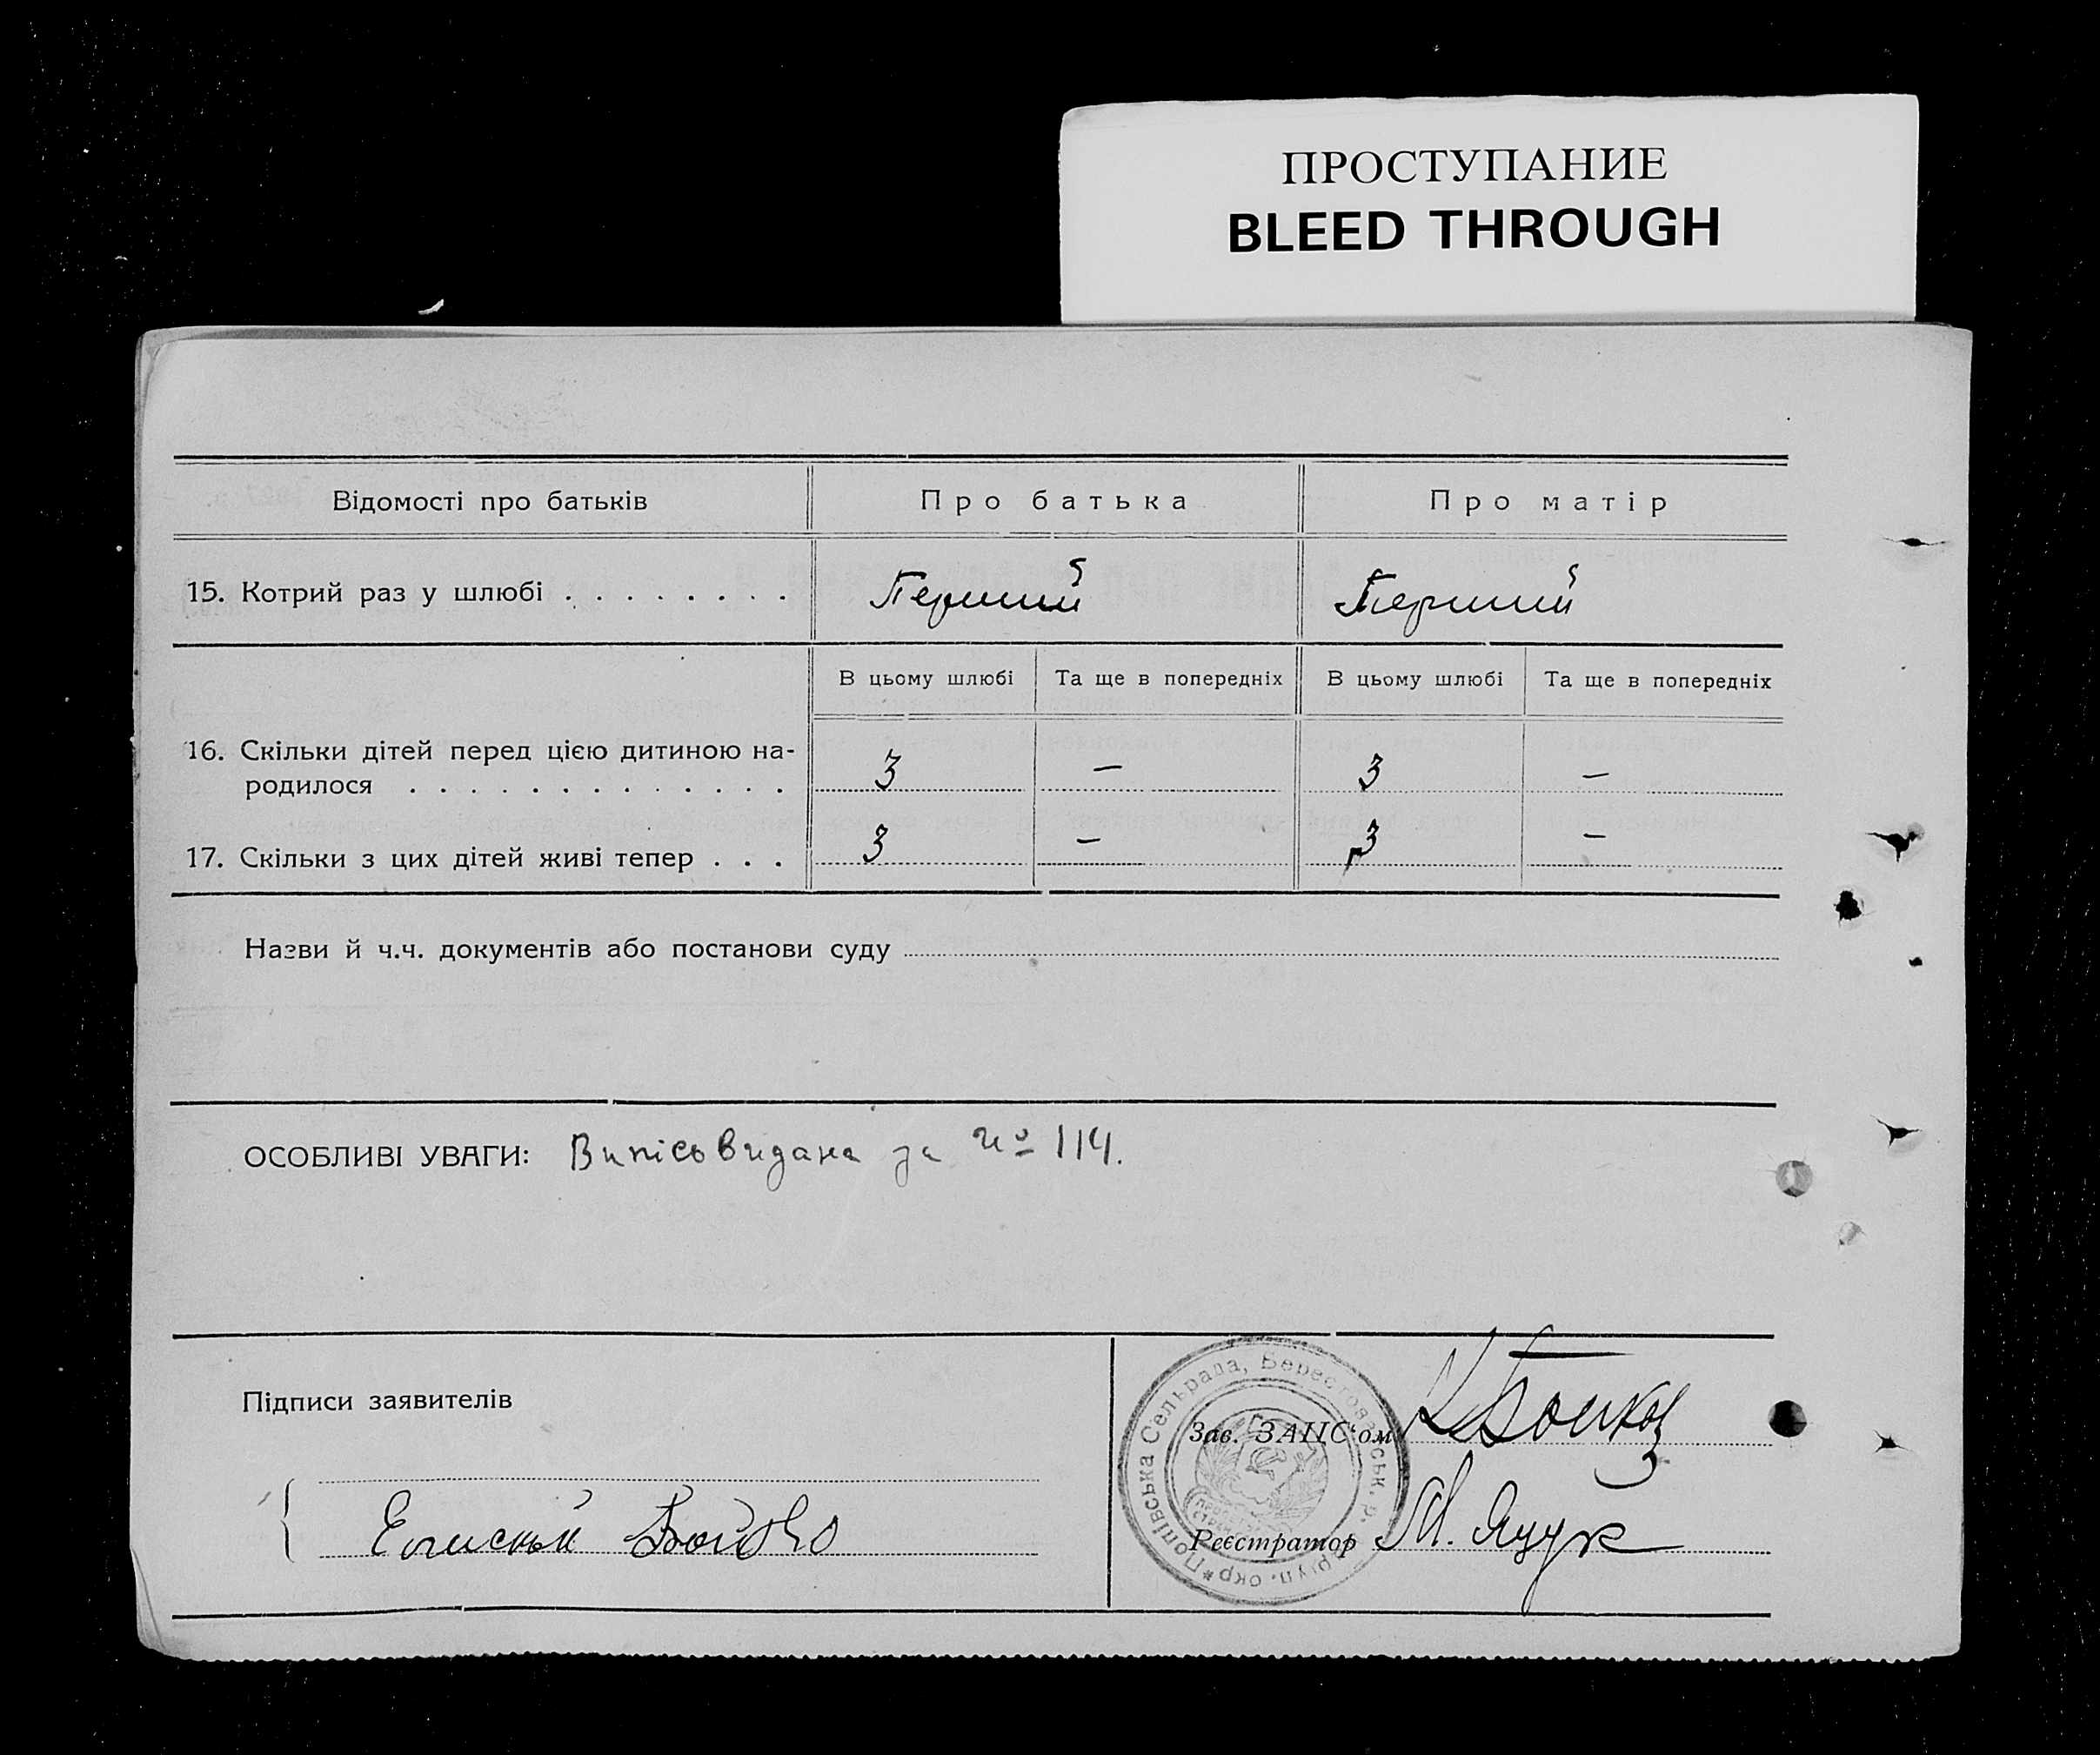 ПРОСТУПАНИЕ
BLEED THROUGH
Відомості про батьків Про батька Про матір
15. Котрий раз у шлюбі . . . . . . . . Перший Перший
В цьому шлюбі Та ще в попередніх В цьому шлюбі Та ще в попередніх
16. Скільки дітей перед цією дитиною на-
родилося . . . . . . . . . . . . . 3 — 3 —
17. Скільки з цих дітей живі тепер . . . 3 — 3 —
Назви й ч.ч. документів або постанови суду
ОСОБЛИВІ УВАГИ: Випісь видана за № 114.
Підписи заявителів
Зав. ЗАГС'ом
Реєстратор М. Яцук
Попівська Сельрада, Берестов
окр